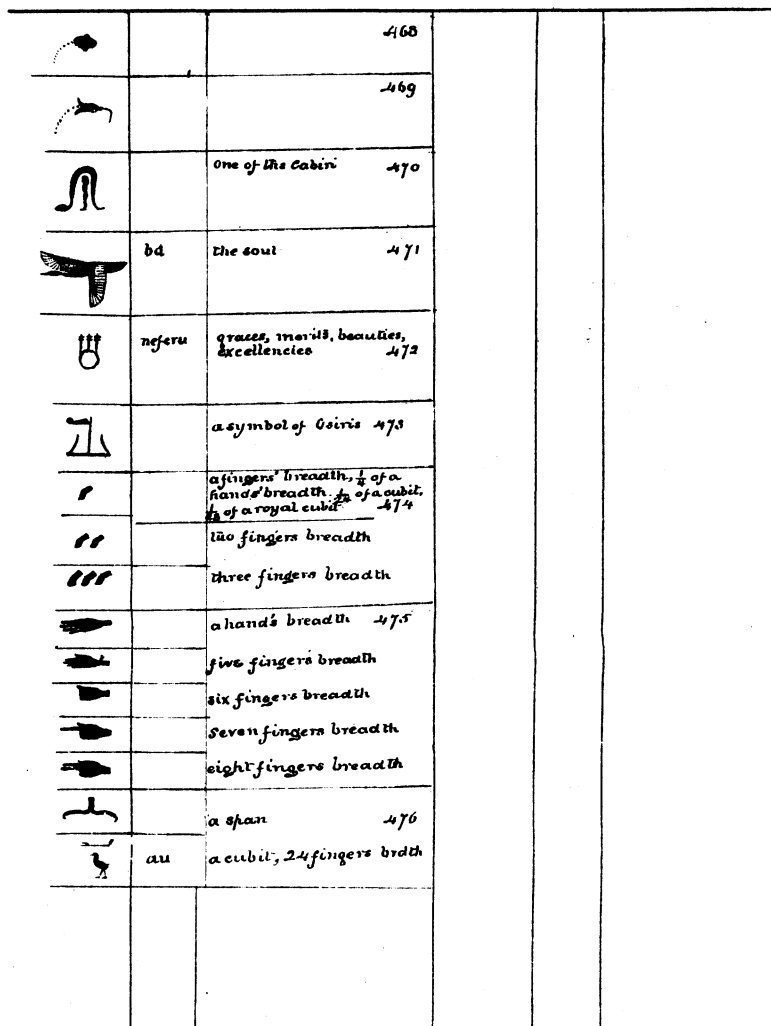 468
469
One of the Cabiri 470
ba the soul 471
neferu graces, merits, beauties,
excellencies 472
a symbol of Osiris 473
a fingers' breadth, 1/4 of a
hands' breadth. 1/24 of a cubit,
of a royal cubit 474
two fingers breadth
three fingers breadth
a hand's breadth 475
five fingers breadth
six fingers breadth
seven fingers breadth
eight fingers breadth
a span 476
au a cubit, 24 fingers brdth